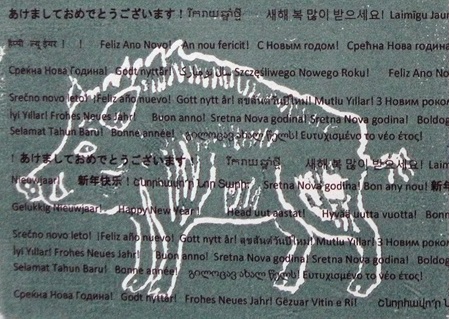 あけましておめでとうございます！ 새해 복 많이 받으세요! Laimīgu Jaun
हैप्पी न्यू ईयर！ ！ Feliz Ano Novo! An nou fericit! С Новым годом! Срећна Нова година
Среќна Нова Година! Godt nyttår! Szczęśliwego Nowego Roku! Feliz Ano
Srečno novo leto! ¡Feliz año nuevo! Gott nytt år! Mutlu Yıllar! З Новим роком
İyi Yıllar! Frohes Neues Jahr! Buon anno! Sretna Nova godina! Sretna Nova godina! Boldog
Selamat Tahun Baru! Bonne année! გილოცავ ახალ წელს! Ευτυχισμένο το νέο έτος!
！あけましておめでとうございます！ 새해 복 많이 받으세요! Laim
Nieuwjaar! 新年快乐！ Շնորհավոր Նոր Sretna Nova godina! Bon any nou! 新年
Gelukkig Nieuwjaar! Happy New Year! Head uut aastat! Hyvää uutta vuotta! Bonne
Srečno novo leto! ¡Feliz año nuevo! Gott nytt år! Mutlu Yıllar! З Новим роком
İyi Yıllar! Frohes Neues Jahr! Buon anno! Sretna Nova godina! Sretna Nova godina! Boldog
Selamat Tahun Baru! Bonne année! გილოცავ ახალ წელს! Ευτυχισμένο το νέο έτος!
Среќна Нова Година! Godt nyttår! Frohes Neues Jahr! Gëzuar Vitin e Ri! Շնորհավոր Ն